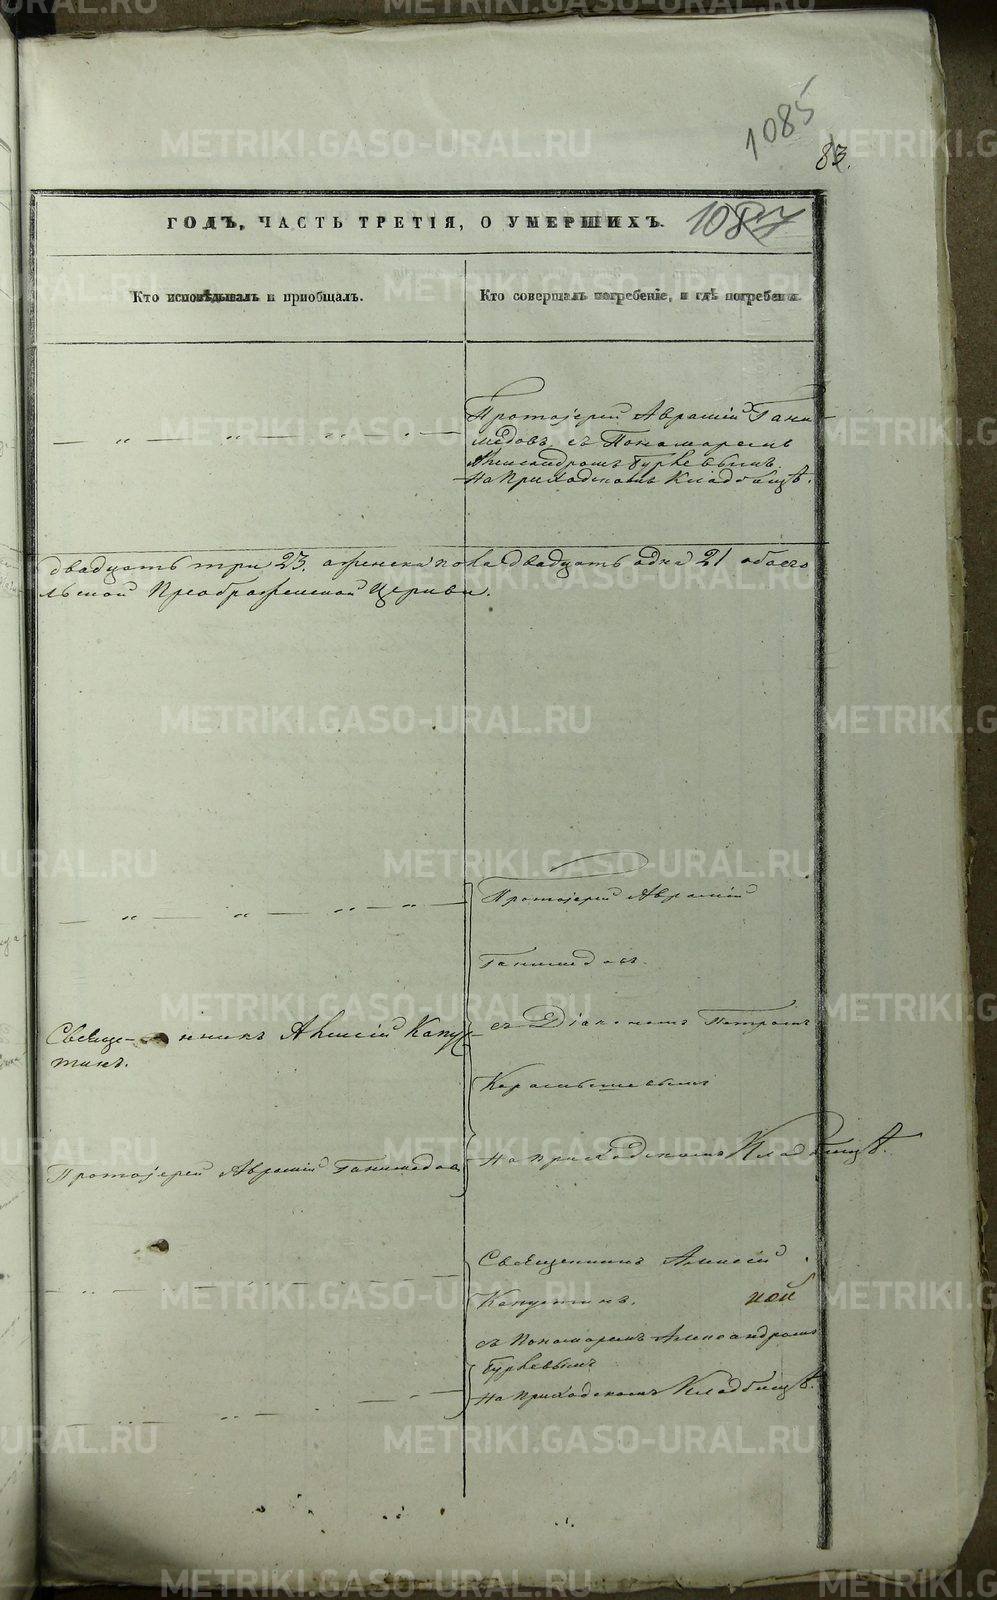 1085
83.
ГОДЪ, ЧАСТЬ ТРЕТІЯ, О УМЕРШИХЪ.
1087
Кто исповѣдывалъ и пріобщалъ.
Кто совершалъ погребеніе, и гдѣ погребены.
Протоіерей Аврамій Гани-
медовъ съ Пономаремъ
Александромъ
На Приходскомъ Кладбищѣ.
двадцать три 23. а женска пола двадцать одна 21 обоего
льской Преображенской Церкви.
Протоіерей Аврамій
Ганимедовъ.
Священникъ Алексій Капус-
тинъ.
съ Діакономъ Петромъ
Протоіерей Аврамій Ганимедовъ
На Приходскомъ Кладбищѣ.
Священникъ Алексій
Капустинъ.
ной
съ Пономаремъ Александромъ
На Приходскомъ Кладбищѣ.
METRIKI.GASO-URAL.RU